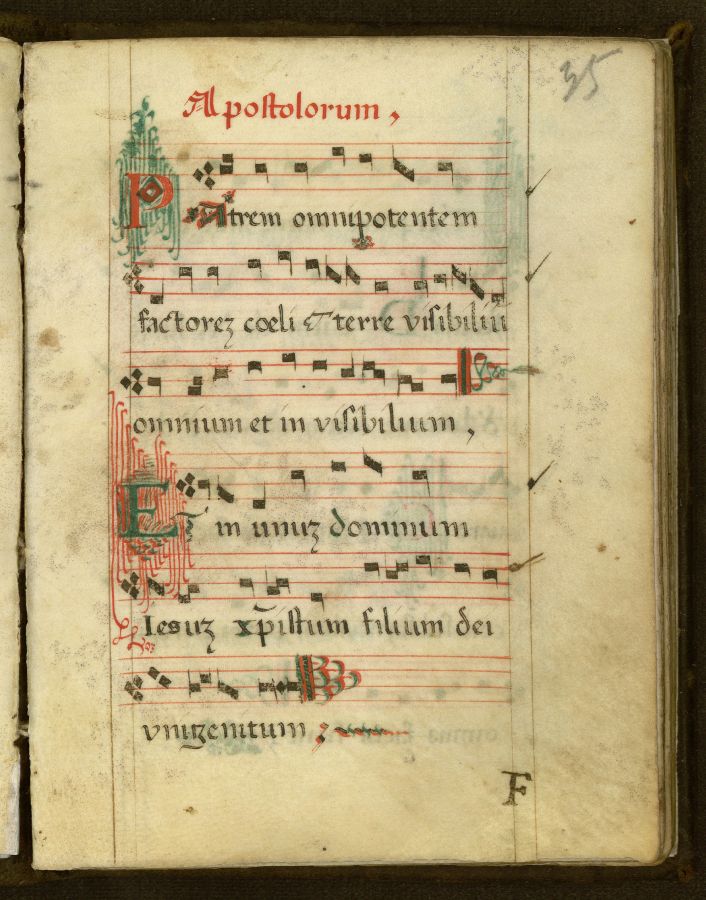 35
Apostolorum,
PAtrem omnipotentem
factoreʒ cœli & terre visibiliū
omnium et in visibilium,
ET in unuʒ dominum
Iesuʒ xp̄istum filium dei
vnigenitum;
F